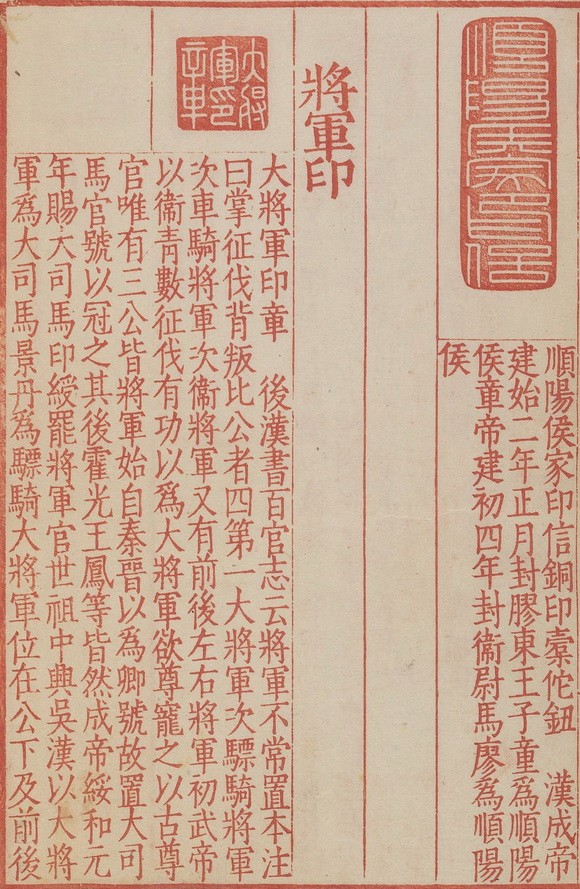 順陽侯家印信
順陽侯家印信銅印橐佗鈕　漢成帝
建始二年正月封膠東王子童爲順陽
侯章帝建初四年封衞尉馬廖爲順陽
侯
將軍印
大將
軍印
章
大將軍印章　後漢書百官志云將軍不常置本注
曰掌征伐背叛比公者四第一大將軍次驃騎將軍
次車騎將軍次衞將軍又有前後左右將軍初武帝
以衞青數征伐有功以爲大將軍欲尊寵之以古尊
官唯有三公皆將軍始自秦晉以為卿號故置大司
馬官號以冠之其後霍光王鳳等皆然成帝綏和元
年賜大司馬印綬罷將軍官世祖中興吳漢以大將
軍爲大司馬景丹爲驃騎大將軍位在公下及前後